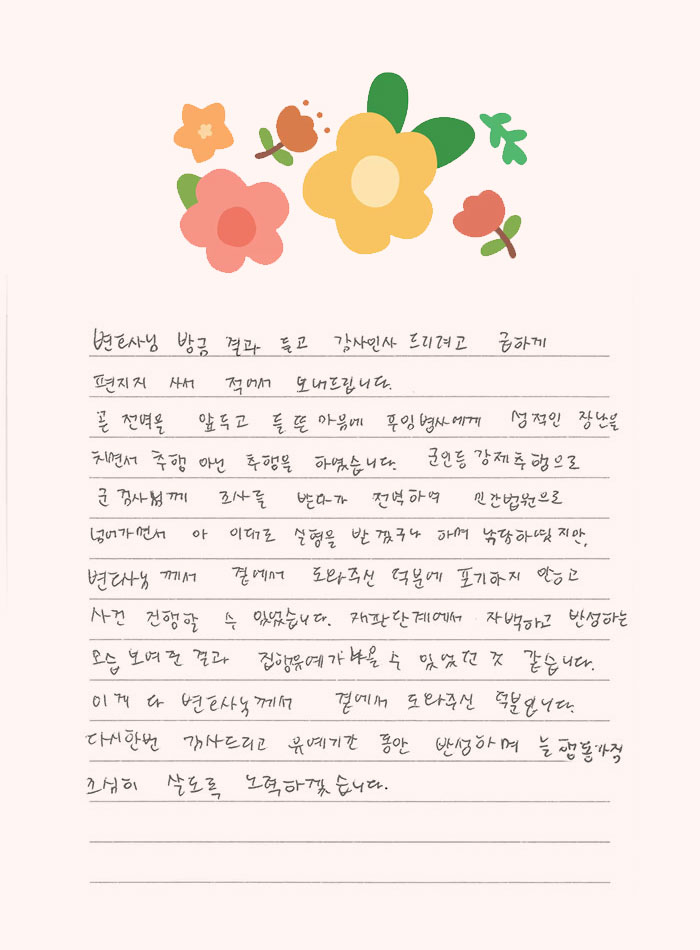 변호사님 방금 결과 듣고 감사인사 드리려고 급하게
편지지 사서 적어서 보내드립니다.
곧 전역을 앞두고 들뜬 마음에 후임병사에게 성적인 장난을
치면서 추행 아닌 추행을 하였습니다. 군인등강제추행으로
군검사님께 조사를 받다가 전역하여 민간법원으로
넘어가면서 아 이대로 실형을 받겠구나 하며 낙담하였지만,
변호사님께서 곁에서 도와주신 덕분에 포기하지 않고
사건 진행할 수 있었습니다. 재판단계에서 자백하고 반성하는
모습 보여준 결과 집행유예가 나올 수 있었던 것 같습니다.
이게 다 변호사님께서 곁에서 도와주신 덕분입니다.
다시한번 감사드리고 유예기간 동안 반성하며 늘 행동가짐
조심히 살도록 노력하겠습니다.